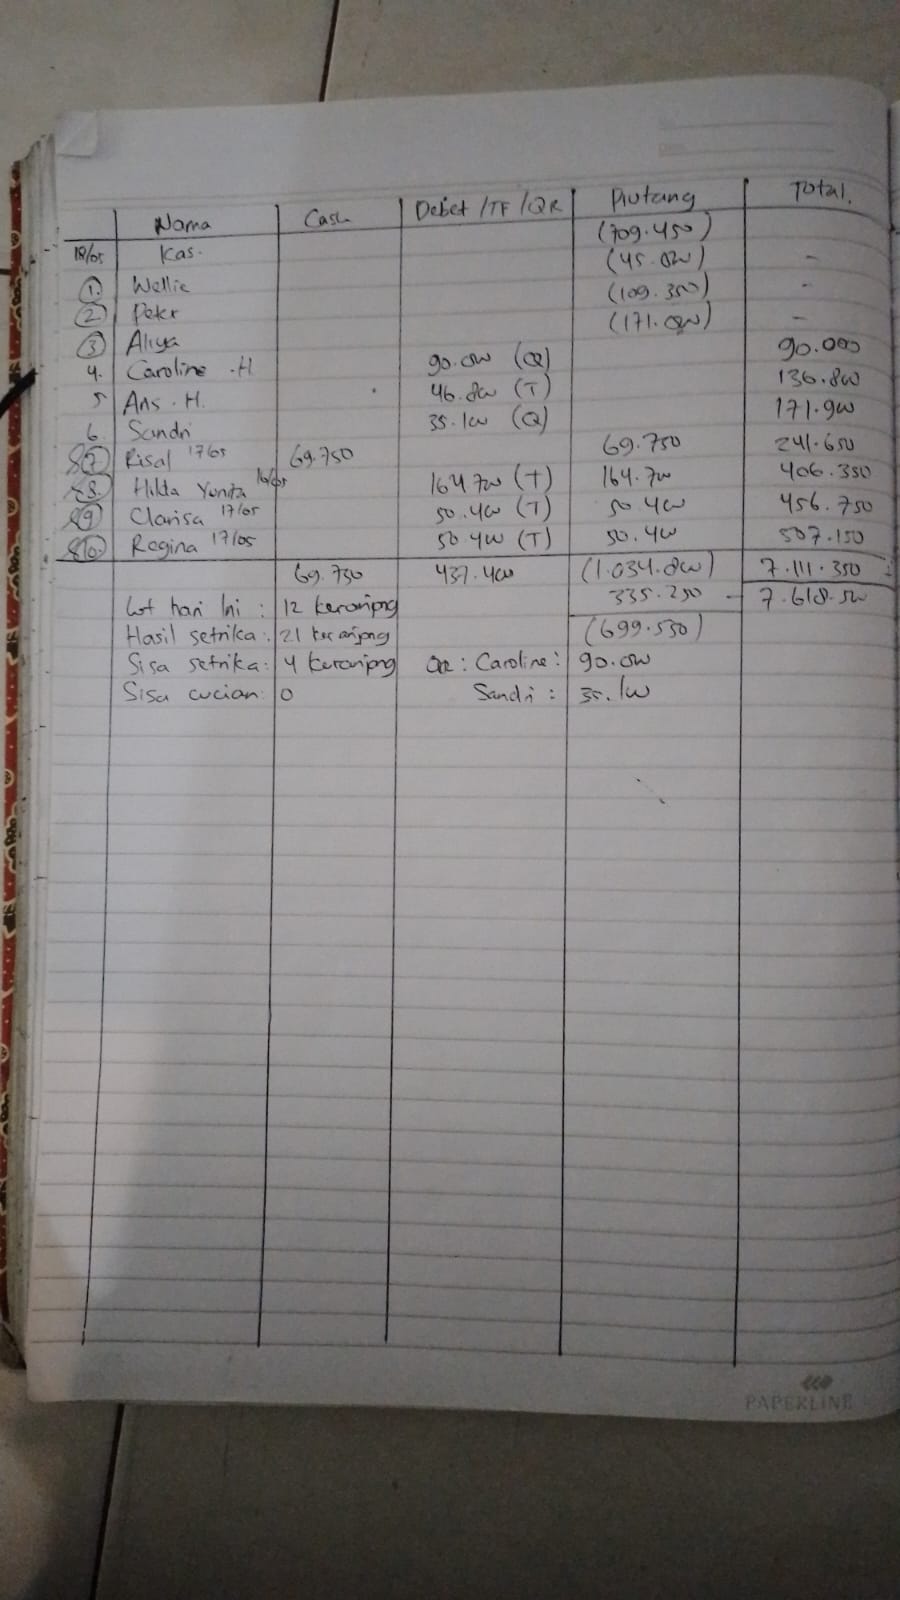 Nama Cash Debet /TF /QR Piutang Total.
18/05 Kas. (709.450)
1. Wellie (45.000) -
2. Peter (109.350) -
3 Aliya (171.000) -
4. Caroline .H 90.000 (Q) 90.000
5 Ans . H. 46.800 (T) 136.800
6. Sandri 35.100 (Q) 171.900
7 Risal 17/05 69.750 69.750 241.650
8. Hilda Yunita 16/05 164.700 (T) 164.700 406.350
9 Clarisa 17/05 50.400 (T) 50.400 456.750
10. Regina 17/05 50.400 (T) 50.400 507.150
69.750 437.400 (1.034.800) 7.111.350
Lot hari ini : 12 keranjang 335.250 - 7.618.500
Hasil setrika : 21 keranjang (699.550)
Sisa setrika : 4 keranjang QR : Caroline : 90.000
Sisa cucian : 0 Sandri : 35.100
PAPERLINE